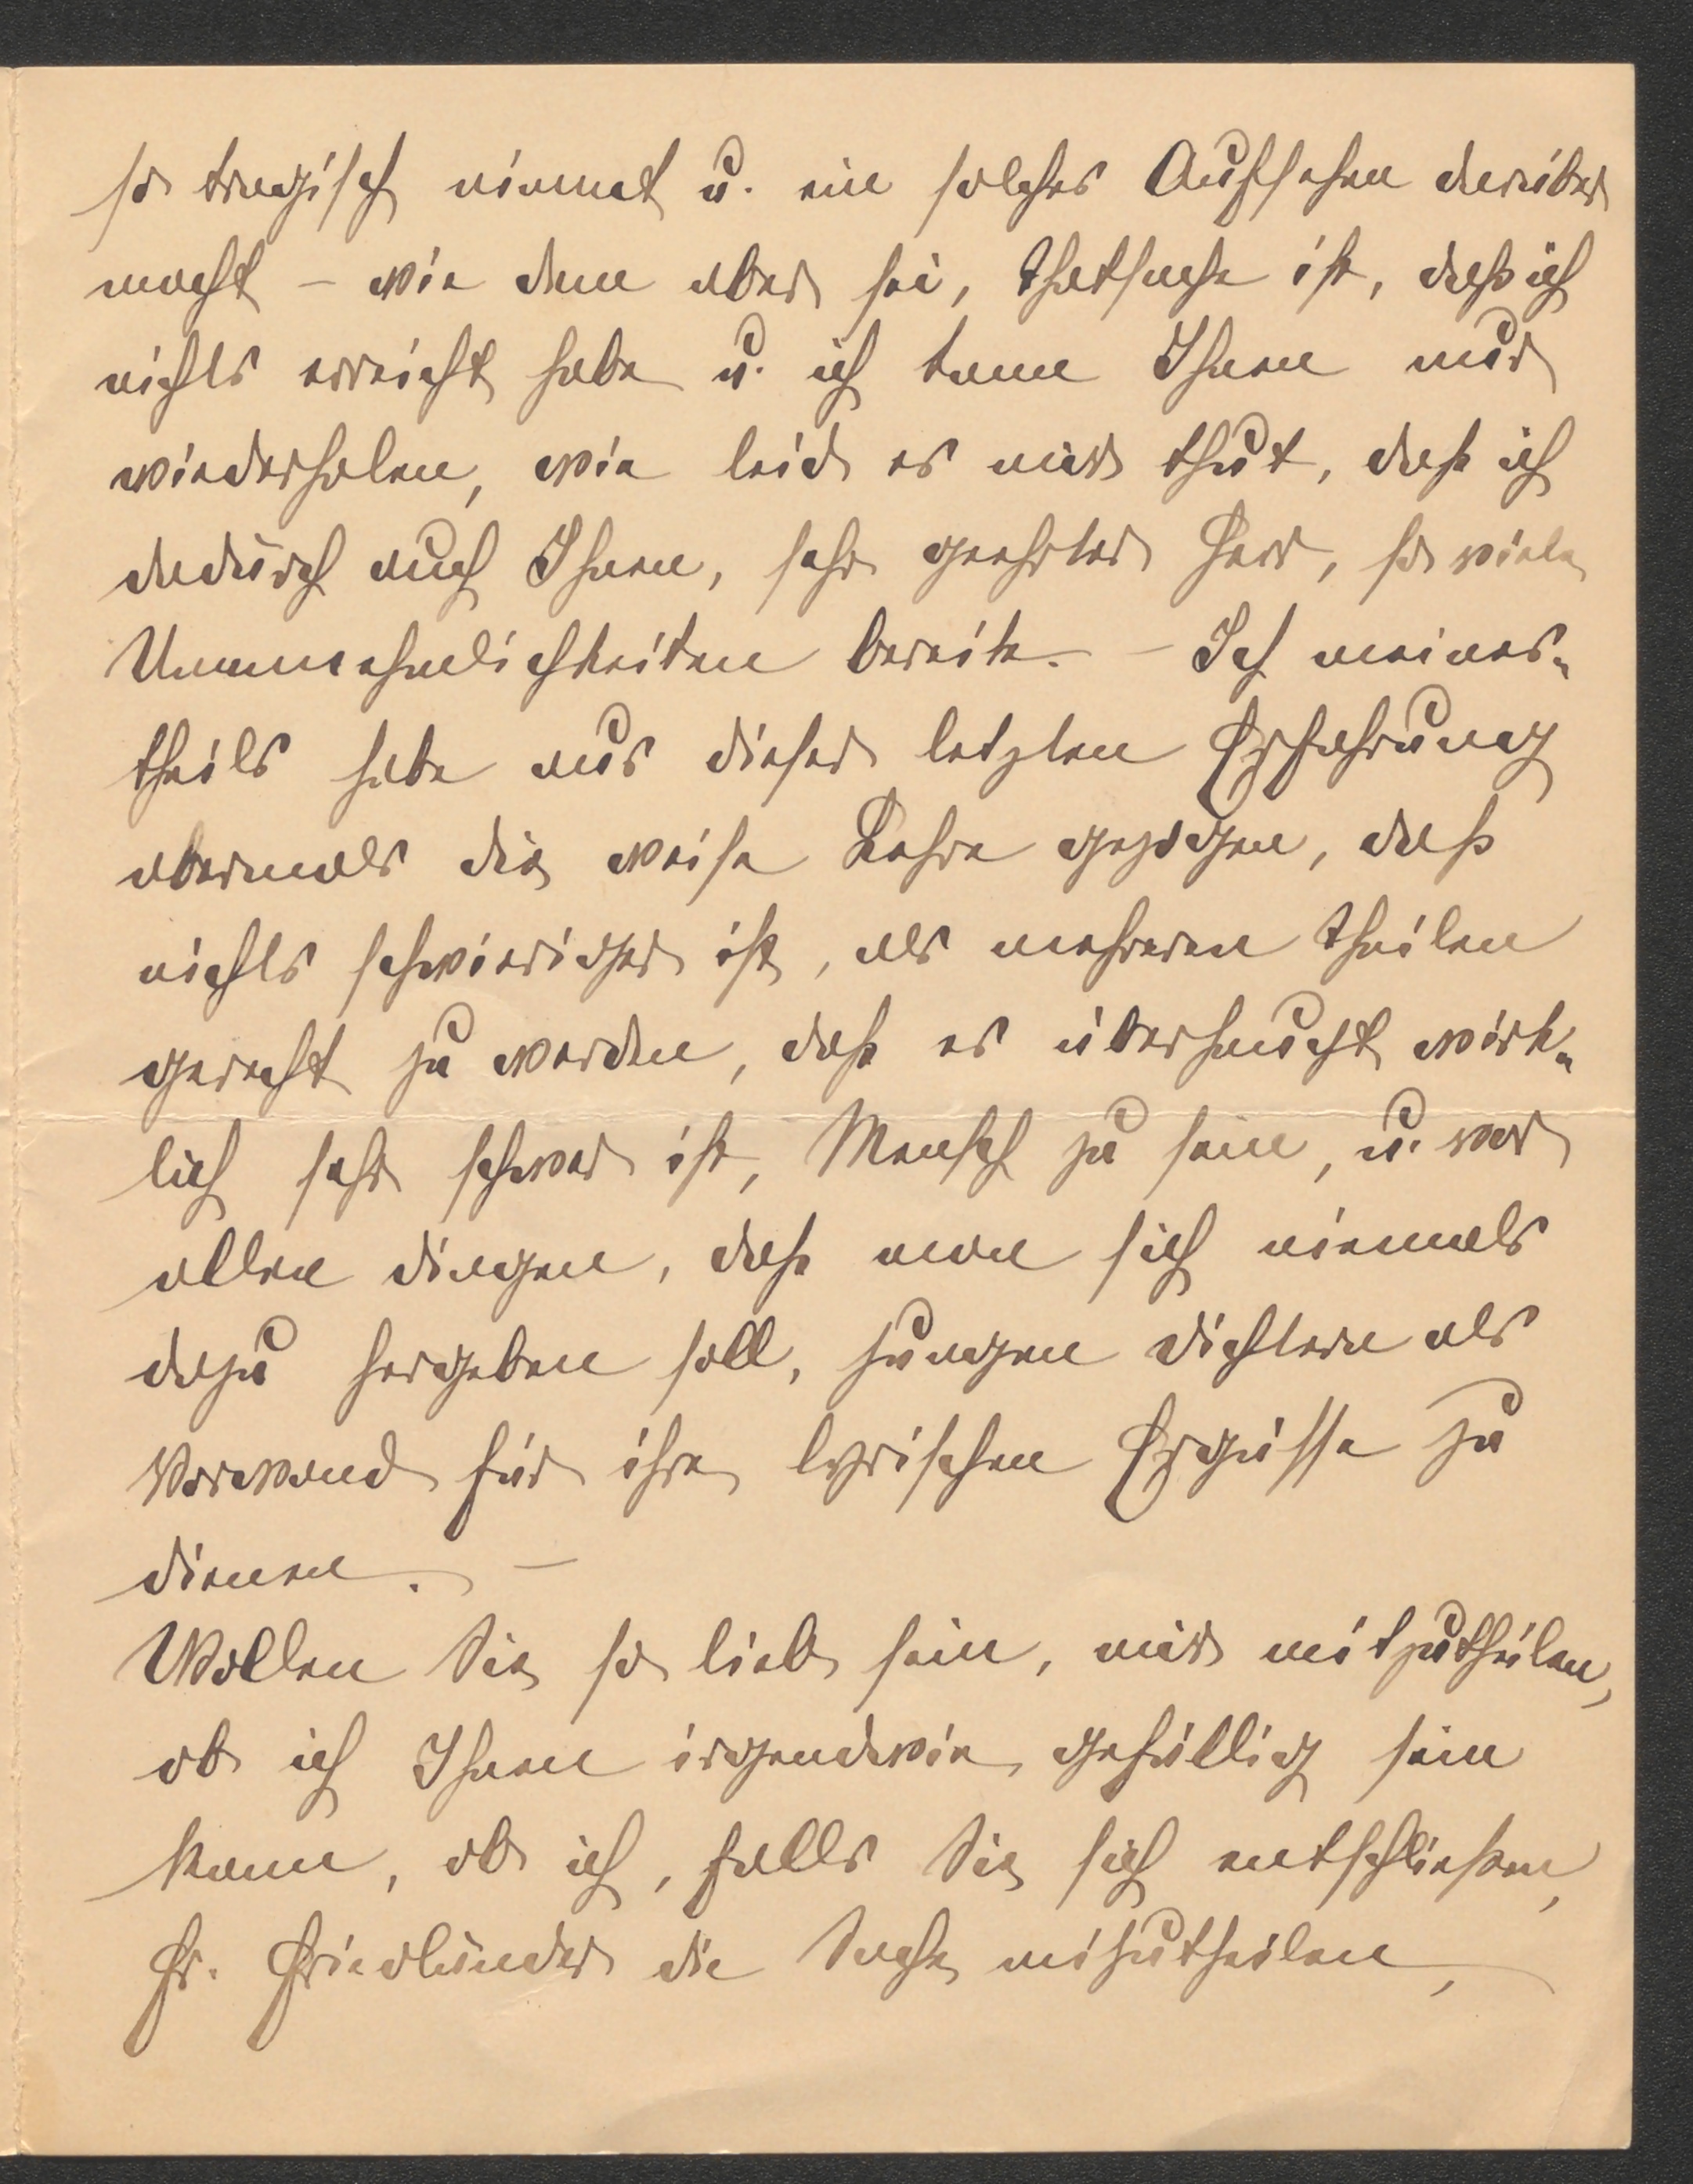 so tragisch nimmt u. ein solches Aufsehen darüber
macht – wie dem aber sei, Thatsache ist, daß ich
nichts erreicht habe u. ich kann Ihnen nur
wiederholen, wie leid es mir thut, daß ich
dadurch auch Ihnen, sehr geehrter Herr, so viele
Unannehmlichkeiten bereite. – Ich meines-
theils habe aus dieser letzten Erfahrung
abermals die weise Lehre gezogen, daß
nichts schwieriger ist, als mehreren Theilen
gerecht zu werden, daß es überhaupt wirk-
lich sehr schwer ist, Mensch zu sein, u. vor
allen Dingen, daß man sich niemals
dazu hergeben soll, jungen Dichtern als
Vorwand für ihre lyrischen Ergüsse zu
dienen. –
Wollen Sie so lieb sein, mir mitzutheilen,
ob ich Ihnen irgendwie gefällig sein
kann, ob ich, falls Sie sich entschließen,
Fr. Friedländer die Sache mitzutheilen,